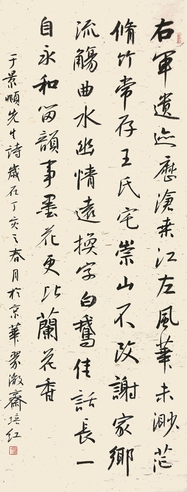 右軍遺迹歷滄桑江左風華未渺茫
脩竹常存王氏宅崇山不改謝家鄉
流觴曲水幽情遠換字白鵝佳話長一
自永和留韻事墨花更比蘭花香
于景頫先生詩歲在丁亥之春月於京華裳激齋培红